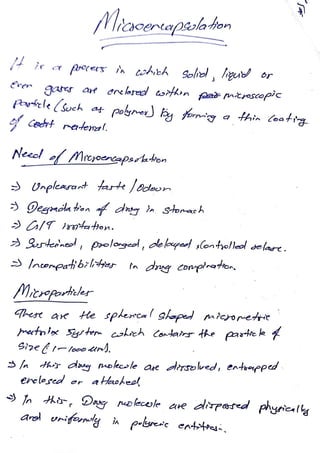 Microencapsulation
It is a process in which solid, liquid or
even gases are enclosed within microscopic
particle (such as polymer) by forming a thin coating
of material.
Need of Microencapsulation
⇒ Unpleasant taste/odour
⇒ Degradation of drug in stomach
⇒ G/T irritation.
⇒ Sustained, prolonged, delayed, controlled
⇒ Incompatibilities in drug
Microparticles
These are the spherical shaped micrometric
matrix system which contains the particle of
size (1-1000 um).
⇒ In this drug molecule are dissolved, entrapped
enclosed or attached.
⇒ In this, Drug molecule are dispersed physically
and uniformly in